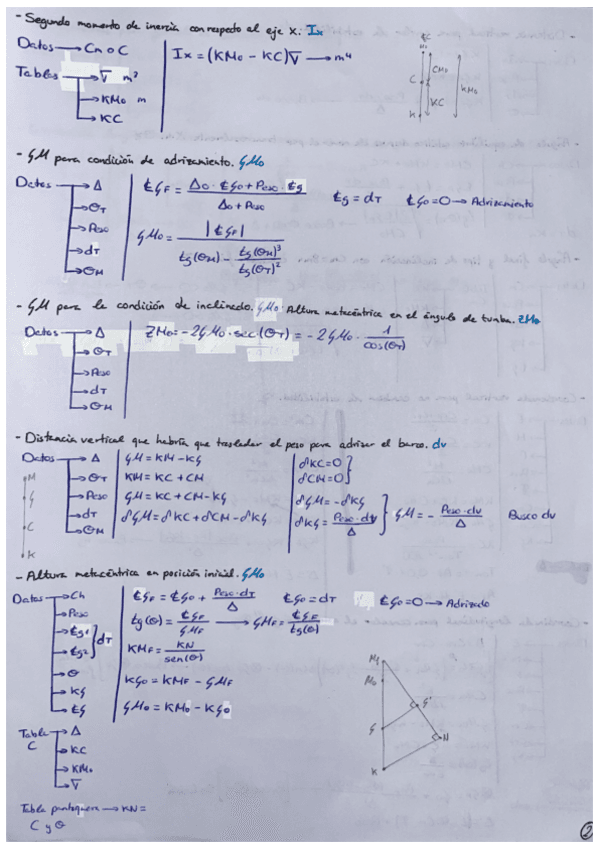 - Segundo momento de inercia con respecto al eje X. Ix
Datos → Cm o C
Ix = (KMo - KC)∇ → m⁴
Tablas → ∇ m³
→ KMo m
→ KC
Mo
C
CMo
KC
KMo
K
- GM para condición de adrizamiento. GMo
Datos → Δ
→ θT
→ Peso
→ dT
→ θM
₵GF = (Δo · ₵Go + Peso · ₵g) / (Δo + Peso)
₵g = dT
₵Go = 0 → Adrizamiento
GMo = |₵GF| / (tg(θM) - tg(θM)³ / tg(θT)²)
- GM para la condición de inclinado. GMo. Altura metacéntrica en el ángulo de tumba. ZMo
Datos → Δ
→ θT
→ Peso
→ dT
→ θM
ZMo = -2GMo · sec(θT) = -2GMo · 1 / cos(θT)
- Distancia vertical que habría que trasladar el peso para adrizar el barco. dv
Datos → Δ
→ θT
→ Peso
→ dT
→ θM
M
G
C
K
GM = KM - KG
KM = KC + CM
GM = KC + CM - KG
δGM = δKC + δCM - δKG
δKC = 0
δCM = 0
δGM = -δKG
δKG = Peso · dv / Δ
GM = - Peso · dv / Δ
Busco dv
- Altura metacéntrica en posición inicial. GMo
Datos → Ch
→ Peso
→ ₵g1
→ ₵g2
} dT
→ θ
→ KG
→ ₵G
₵GF = ₵Go + Peso · dT / Δ
₵Go = dT
₵Go = 0 → Adrizado
tg(θ) = ₵GF / GMF → GMF = ₵GF / tg(θ)
KMF = KN / sen(θ)
KGo = KMF - GMF
GMo = KMo - KGo
Tabla → Δ
C
→ KC
→ KMo
→ ∇
Mf
Mo
G
G'
N
K
Tabla pantoquera → KN =
C y θ
2